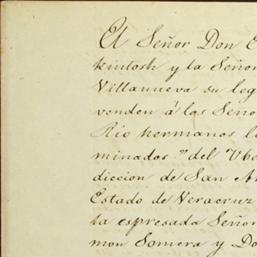 El Señor Don E
kintosh y la Señor
Villanueva su leg
venden á los Seño
Rio hermanos l
minados del Ube
diccion de San A
Estado de Veracruz
la espresada Señor
mon Somera y Do